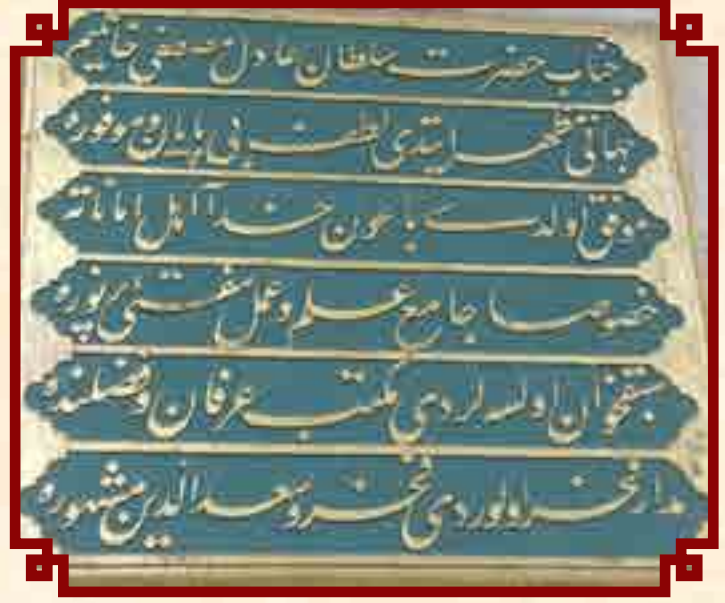 جناب حضرت سلطان عادل مصطفی خانیم
جهانی مظهر ایتدی لطف بی پایان موفوره
موفق اولدی باعون خدا آمال
خصوصا جامع علم و عمل مفتی
سبقخوان اولسه لردی مکتب عرفان و فضلنده
مدار فخر اولوردی فخر و سعد الدین مشهوره